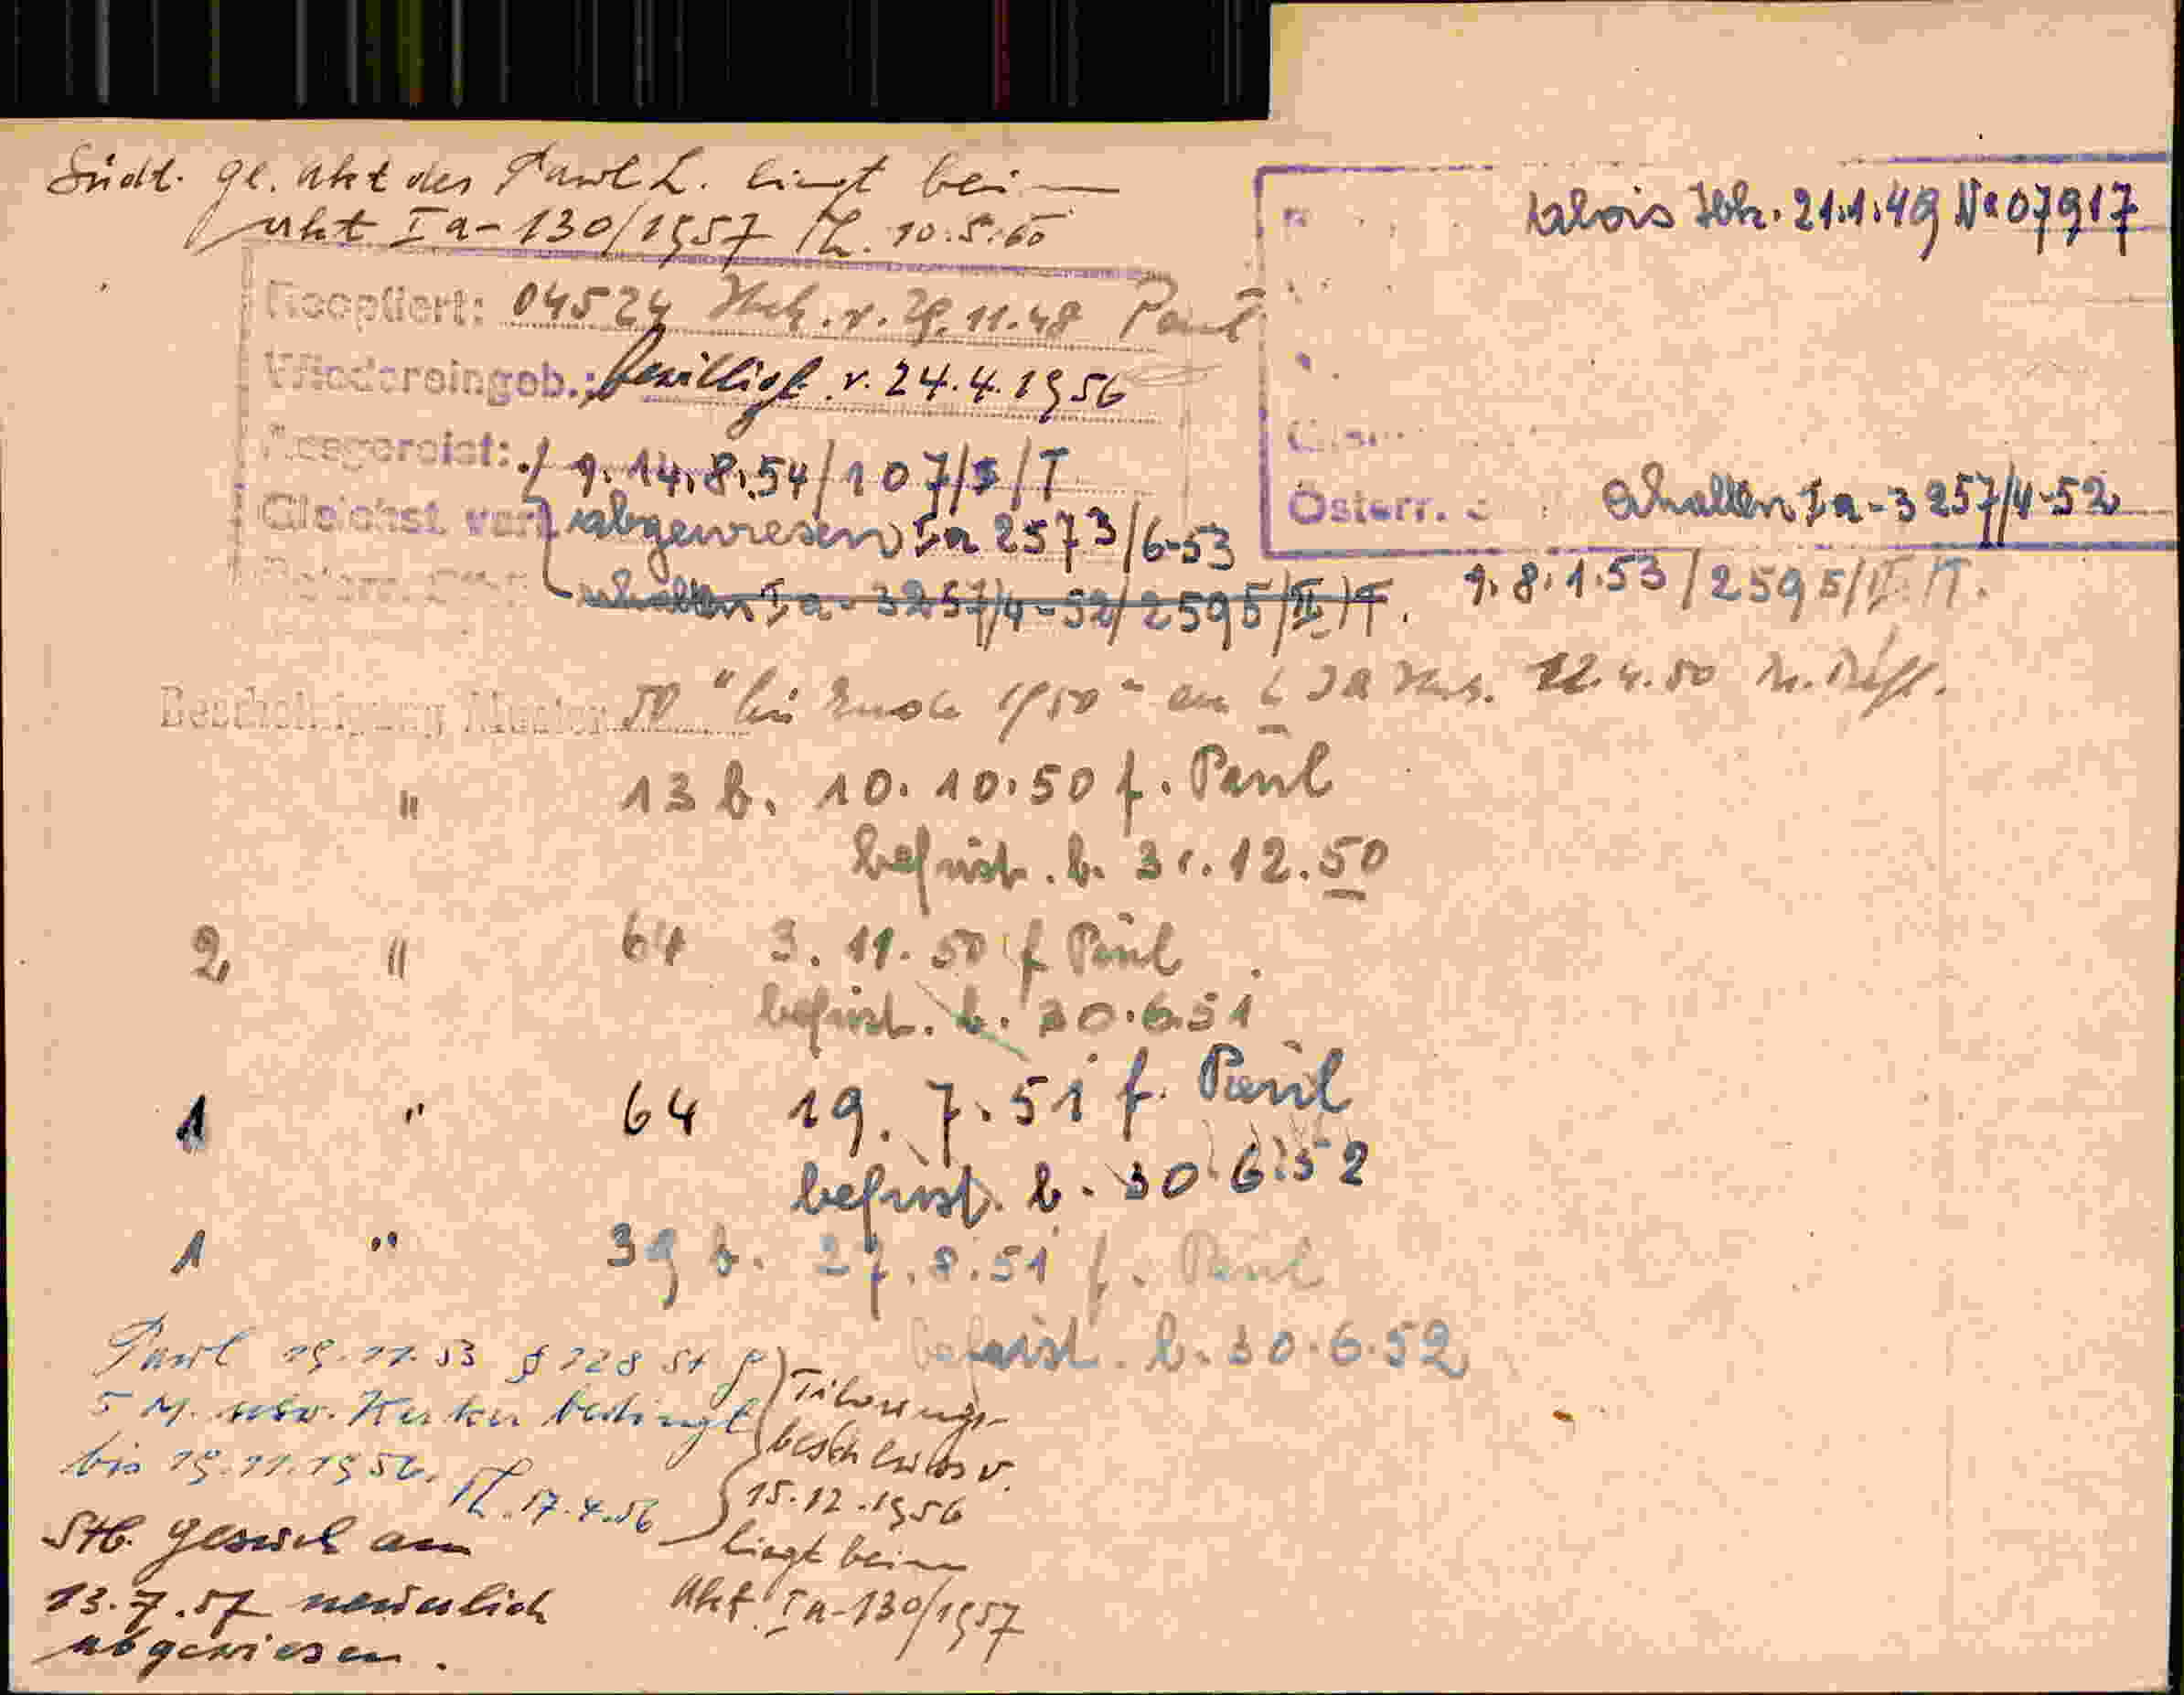 Südt. gl. Akt des Paul L. liegt beim
Akt Ia-130/1957 Th. 10.5.60
Reoptiert: 04524 Ibk. v. 29.11.48 Paul
Wiedereingeb.: bewilligt v. 24.4.1956
Ausgereist: ./ 9. 14.8.54/107/5/T
Gleichst. abgewiesen Ia 2573/6-53
erhalten Ia-3257/4-52/2595/II/T.
Alois Ibk. 21.1.49 No 07917
Österr. erhalten Ia-3257/4-52
9. 8.1.53/2595/II/T.
Bescheinigung Muster 50 "bis Ende 1950" 12.4.50
" 13 b. 10.10.50 f. Paul
befrist. b. 31.12.50
2 " 64 3.11.50 f Paul
befrist. b. 30.6.51
1 " 64 19.7.51 f. Paul
befrist. b. 30.6.52
1 " 39 b. 27.8.51 f. Paul
befrist. b. 30.6.52
Paul 19.11.53 § 128 St g
5 M. schw. Kerker bedingt
bis 19.11.1956. Th. 17.4.56
Tilgungs-
beschluss v.
15.12.1956
liegt beim
Akt Ia-130/1957
Stb. gesuch am
13.7.57 neuerlich
abgewiesen.